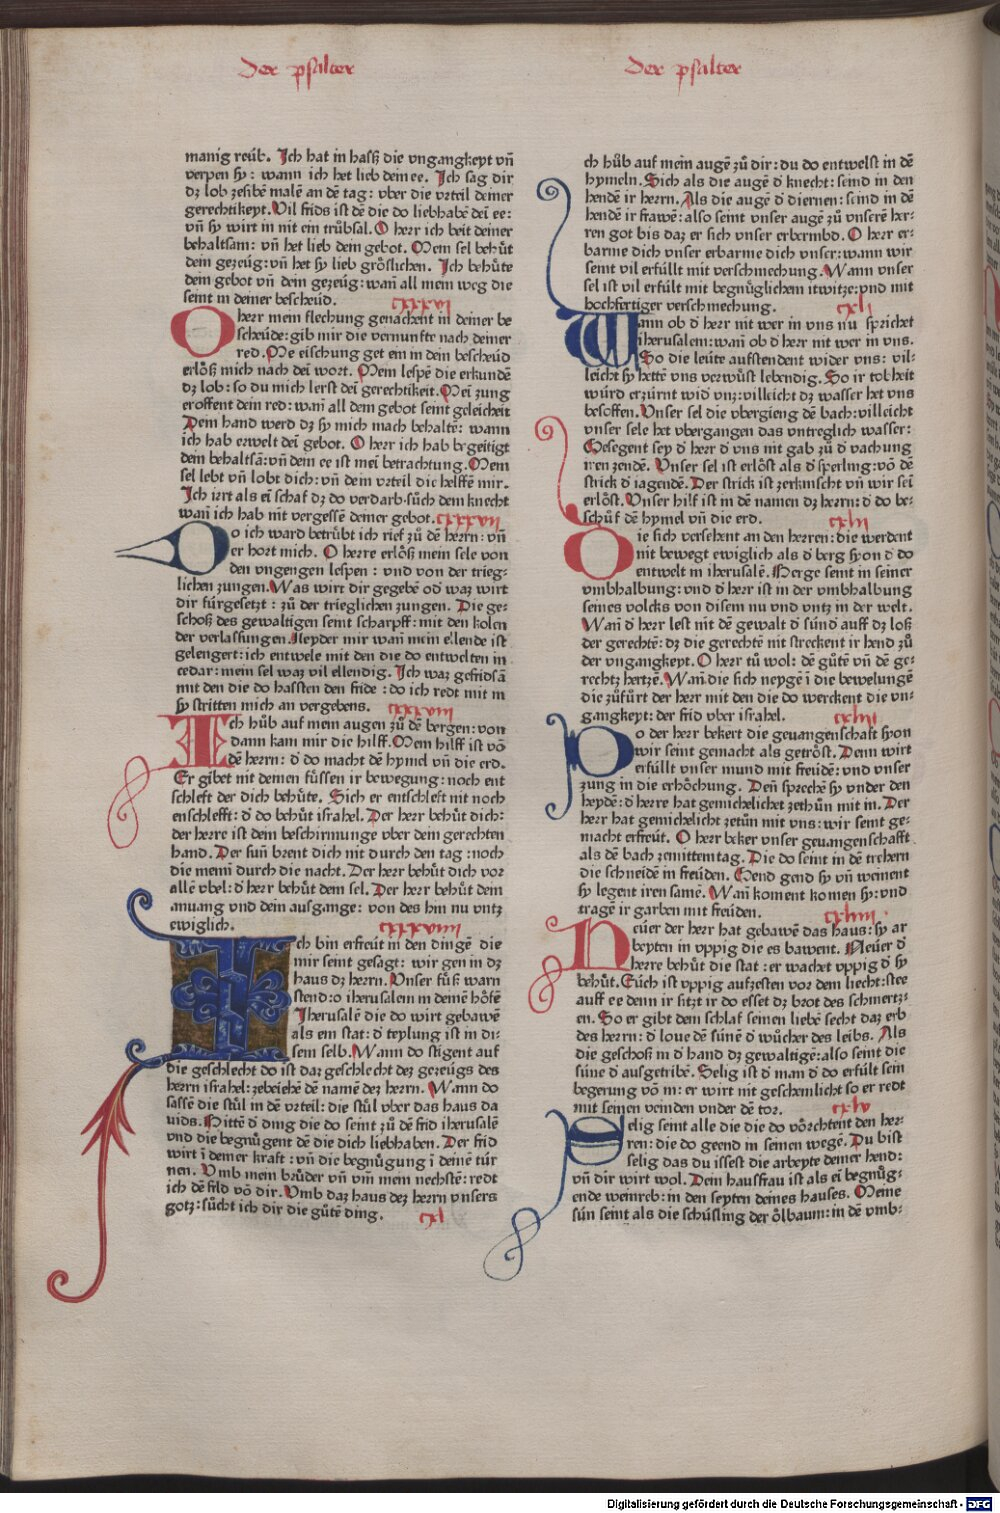 der psalter
der psalter
manig reüb. Ich hat in hasß die vngangkeyt vñ
verpen sy: wann ich het lieb dein ee. Ich sag dir
dz lob zesibē malē an dē tag: vber die vrteil deiner
gerechtikeyt. Vil frids ist dē die do liebhabē dei ee:
vñ sy wirt in nit ein trůbsal. O herr ich beit deiner
behaltsam: vñ het lieb dein gebot. Mein sel behůt
dein gezeüg: vñ het sy lieb größlichen. Ich behůte
dein gebot vñ dein gezeüg: wañ all mein weg die
seint in deiner bescheüd. cxxxvi
O herr mein flechung genachent in deiner be
scheüde: gib mir die vernunfte nach deiner
red. Me eischung get ein in dein bescheüd
erlöß mich nach dei wort. Mein lespē die erkundē
dz lob: so du mich lerst dei gerechtikeit. Mei zung
eroffent dein red: wañ all dein gebot seint geleicheit
Dein hand werd dz sy mich mach behaltē: wann
ich hab erwelt dei gebot. O herr ich hab begeitigt
dein behaltsā: vñ dein ee ist mei betrachtung. Mein
sel lebt vñ lobt dich: vñ dein vrteil die helffē mir.
Ich irrt als ei schaf dz do verdarb. sůch dein knecht
wañ ich hab nit vergessē deiner gebot. cxxxvii
Do ich ward betrůbt ich rief zů dē herrn: vñ
er hort mich. O herre erlöß mein sele von
den vngengen lespen: vnd von der trieg-
lichen zungen. Was wirt dir gegebē od waz wirt
dir fürgesetzt: zů der trieglichen zungen. Die ge-
schoß des gewaltigen seint scharpff: mit den kolen
der verlassungen. Neyder mir wañ mein ellende ist
gelengert: ich entwele mit den die do entwelten in
cedar: mein sel waz vil ellendig. Ich waz gefridsā
mit den die do hassten den fride: do ich redt mit in
sy stritten mich an vergebens. cxxxviii
Ich hůb auf mein augen zů dē bergen: von
dann kam mir die hilff. Mein hilff ist vō
dē herrn: d do macht dē hymel vñ die erd.
Er gibet nit deinen füssen ir bewegung: noch ent
schleft der dich behůte. Sich er entschleft nit noch
enschlefft: d do behůt israhel. Der herr behůt dich:
der herre ist dein beschirmunge vber dein gerechten
hand. Der suñ brent dich nit durch den tag: noch
die mein durch die nacht. Der herr behůt dich vor
allē vbel: d herr behůt dein sel. Der herr behůt dein
anuang vnd dein ausgange: von des hin nu vntz
ewiglich. cxxxviiii
Ich bin erfreüt in den dingē die
mir seint gesagt: wir gen in dz
haus dz herrn. Vnser fůß warn
stend: o iherusalem in deinē höfē
Iherusalē die do wirt gebawē
als ein stat: d teylung ist in di-
sein selb. Wann do stigent auf
die geschlecht do ist daz geschlecht dez gezeügs des
herrn israhel: zebeichē dē namē dez herrn. Wann do
sassē die stül in dē vrteil: die stül vber das haus da
uids. Bittē d ding die do seint zů dē frid iherusalē
vnd die begnügent dē die dich liebhaben. Der frid
wirt i deiner kraft: vñ die begnügung i deinē tür
nen. Vmb mein brüder vñ vm mein nechstē: redt
ich dē frid vō dir. Vmb daz haus dez herrn vnsers
gotz: sůcht ich dir die gůtē ding. cxl
ch hůb auf mein augē zů dir: du do entwelst in dē
hymeln. Sich als die augē d knecht: seind in den
hendē ir herrn. Als die augē d diernen: seind in dē
hendē ir frawē: also seint vnser augē zů vnserē her-
ren got bis daz er sich vnser erbermbd. O herr er-
barme dich vnser erbarme dich vnser: wann wir
seint vil erfüllt mit verschmechung. Wann vnser
sel ist vil erfült mit begnüglichem itwitze: vnd mit
hochfertiger verschmechung. cxli
Wann ob d herr nit wer in vns nu sprichet
iherusalem: wañ ob d herr nit wer in vns.
So die leüte aufstendent wider vns: vil-
leicht sy hettē vns verwůst lebendig. So ir tobheit
würd erzürnt wid vnz: villeicht dz wasser het vns
besoffen. Vnser sel die vbergieng dē bach: villeicht
vnser sele het vbergangen das vntreglich wasser:
Gesegent sey d herr d vns nit gab zů d vachung
iren zendē. Vnser sel ist erlöst als d sperling: vō dē
strick d iagendē. Der strick ist zerknischt vñ wir sei
erlöst. Vnser hilf ist in dē namen dz herrn: d do be-
schůf dē hymel vñ die erd. cxlii
Die sich versehent an den herren: die werdent
nit bewegt ewiglich als d berg syon d do
entwelt in iherusalē. Berge seint in seiner
vmbhalbung: vnd d herr ist in der vmbhalbung
seines volcks von disem nu vnd vntz in der welt.
Wañ d herr lest nit dē gewalt d sünd auff dz loß
der gerechtē: dz die gerechtē nit streckent ir hend zů
der vngangkeyt. O herr tů wol: dē gůtē vñ dē ge-
rechtz hertzē. Wañ die sich neygē i die bewelungē
die zůfürt der herr mit den die do werckent die vn-
gangkeyt: der frid vber israhel. cxliii
Do der herr bekert die geuangenschaft syon
wir seint gemacht als getröst. Denn wirt
erfüllt vnser mund mit freüdē: vnd vnser
zung in die erhöchung. Deñ sprechē sy vnder den
heydē: d herre hat gemichelichet zethůn mit in. Der
herr hat gemichelicht zetůn mit vns: wir seint ge-
macht erfreüt. O herr beker vnser geuangenschafft
als dē bach zemittemtag. Die do seint in dē trehern
die schneidē in freüden. Gend gend sy vñ weinent
sy legent iren samē. Wañ koment komen sy: vnd
tragē ir garben mit freüden. cxliiii
Neüer der herr hat gebawē das haus: sy ar
beyten in üppig die es bawent. Neüer d
herre behůt die stat: er wachet vppig d sy
behůt. Eüch ist vppig aufzesten vor dem liecht: stee
auff ee denn ir sitzt ir do esset dz brot des schmertz-
en. So er gibt dem schlaf seinen liebē secht daz erb
des herrn: d lone dē sünē d wücher des leibs. Als
die geschoß in d hand dz gewaltigē: also seint die
süne d ausgetribē. Selig ist d man d do erfült sein
begerung vō in: er wirt nit geschemlicht so er redt
mit seinen veinden vnder dē tor. cxlv
Selig seint alle die die do vörchtent den her-
ren: die do geend in seinen wegē. Du bist
selig das du issest die arbeyte deiner hend:
vñ dir wirt wol. Dein hausfrau ist als ei begnüg-
ende weinreb: in den seyten deines hauses. Deine
sün seint als die schüsling der ölbaum: in dē vmb-
Digitalisierung gefördert durch die Deutsche Forschungsgemeinschaft - DFG